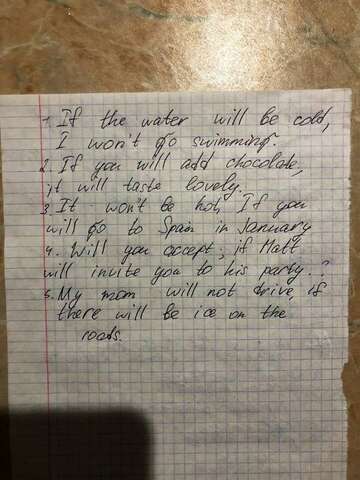 1. If the water will be cold,
I won't go swimming.
2. If you will add chocolate,
it will taste lovely.
3. It won't be hot, If you
will go to Spain in January
4. Will you accept; if Matt
will invite you to his party.?
5. My mom will not drive, if
there will be ice on the
roads.